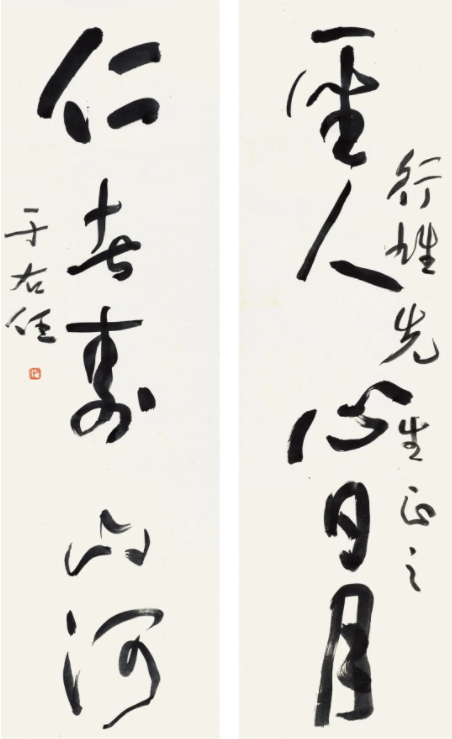 行雄先生正之
聖人心日月
仁者壽山河
于右任